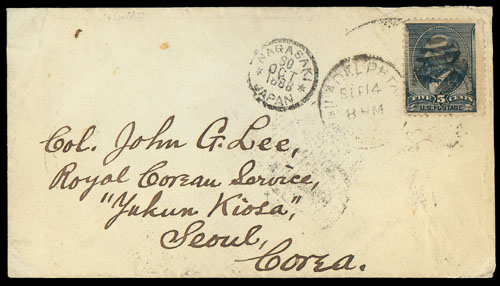 NAGASAKI
30
OCT
1888
JAPAN
ADELPHI
SEP 14
8 PM
FIVE 5 CENTS
U.S. POSTAGE
Col. John G. Lee,
Royal Corean Service,
"Yukun Kiosa",
Seoul,
Corea.